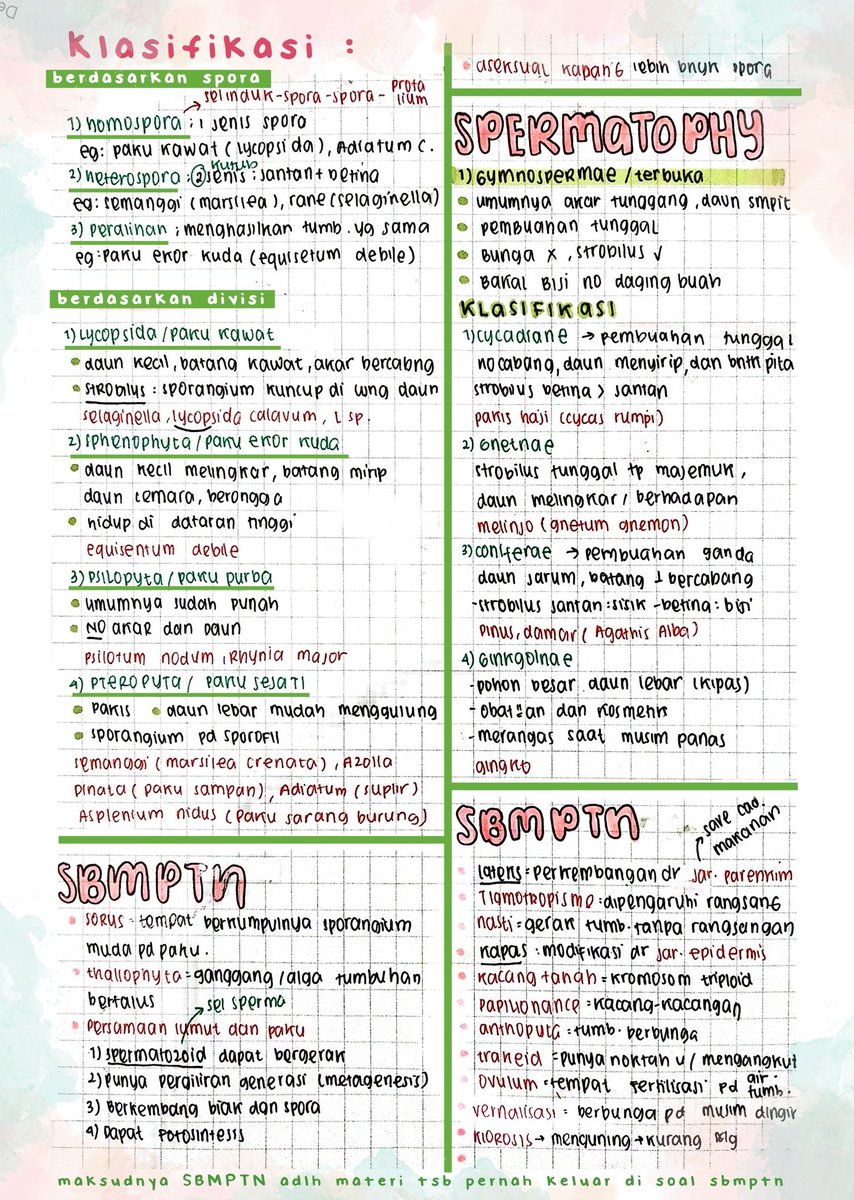 Klasifikasi :
berdasarkan spora
selinduk-spora-spora-protalium
1) homospora : 1 jenis spora
eg: paku kawat (lycopsida), Adiatum c.
2) heterospora : 2 jenis : jantan + betina
eg: semanggi (marsilea), rane (selaginella)
3) peralihan : menghasilkan tumb. yg sama
eg: paku ekor kuda (equisetum debile)
berdasarkan divisi
1) lycopsida / paku kawat
daun kecil, batang kawat, akar bercabng
strobilus : sporangium kuncup di ujng daun
selaginella, lycopsida calavum, L sp.
2) sphenophyta / paku ekor kuda
daun kecil melingkar, batang mirip
daun cemara, berongga
hidup di dataran tinggi
equisentum debile
3) psilopyta / paku purba
umumnya sudah punah
NO akar dan daun
psilotum nodum, Rhynia major
4) pteropyta / paku sejati
pakis daun lebar mudah menggulung
sporangium pd sporofil
semanggi (marsilea crenata), Azolla
pinata (paku sampan), Adiatum (suplir)
Asplenium nidus (paku sarang burung)
SBMPTN
sorus = tempat berkumpulnya sporangium
muda pd paku.
thallophyta = ganggang / alga tumbuhan
bertalus
sel sperma
persamaan lumut dan paku
1) spermatozoid dapat bergerak
2) punya pergiliran generasi (metagenesis)
3) Berkembang biak dgn spora
4) Dapat fotosintesis
aseksual kapang lebih bnyk spora
SPERMATOPHY
1) Gymnospermae / terbuka
umumnya akar tunggang, daun smpit
pembuahan tunggal
Bunga x, strobilus √
Bakal Biji no daging buah
KLASIFIKASI
1) cycadinae → pembuahan tunggal
no cabang, daun menyirip, dan bntk pita
strobilus betina > jantan
pakis haji (cycas rumpi)
2) Gnetnae
strobilus tunggal tp majemuk,
daun melingkar / berhadapan
melinjo (gnetum gnemon)
3) coniferae → pembuahan ganda
daun jarum, batang ⊥ bercabang
-strobilus jantan : sisik -betina : biji
pinus, damar (Agathis Alba)
4) Ginkgoinae
-pohon besar daun lebar (kipas)
-obat"an dan kosmetik
-merangas saat musim panas
gingko
SBMPTN
save cad. makanan
lateks = perkembangan dr jar. parenkim
Tigmotropisme : dipengaruhi rangsang
nasti = gerak tumb. tanpa rangsangan
kapas : modifikasi dr jar. epidermis
kacang tanah = kromosom triploid
papilionance = kacang-kacangan
anthopyta = tumb. berbunga
trakeid = punya noktah u/ mengangkut air.
Ovulum = tempat fertilisasi pd tumb.
vernalisasi = berbunga pd musim dingin
klorosis → menguning → kurang Mg
maksudnya SBMPTN adlh materi tsb pernah keluar di soal sbmptn